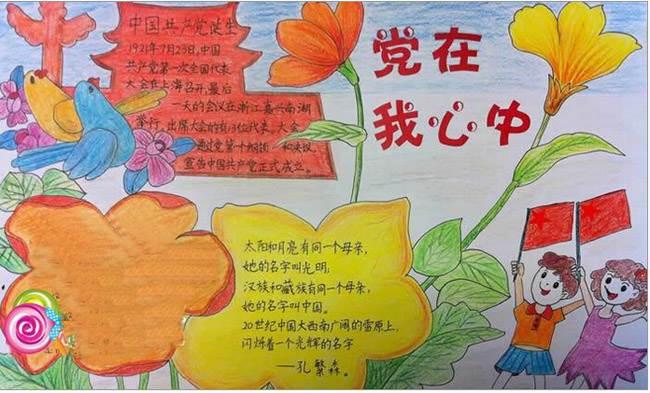 党在
我心中
中国共产党诞生
1921年7月23日,中国
共产党第一次全国代表
大会在上海召开,最后
一天的会议在浙江嘉兴南湖
举行,出席大会的有13位代表,大会
通过党第个纲领 和决议,
宣告中国共产党正式成立。
太阳和月亮有同一个母亲,
她的名字叫光明,
汉族和藏族有同一个母亲,
她的名字叫中国。
20世纪中国大西南广阔的雪原上,
闪烁着一个光辉的名字
——孔繁森。